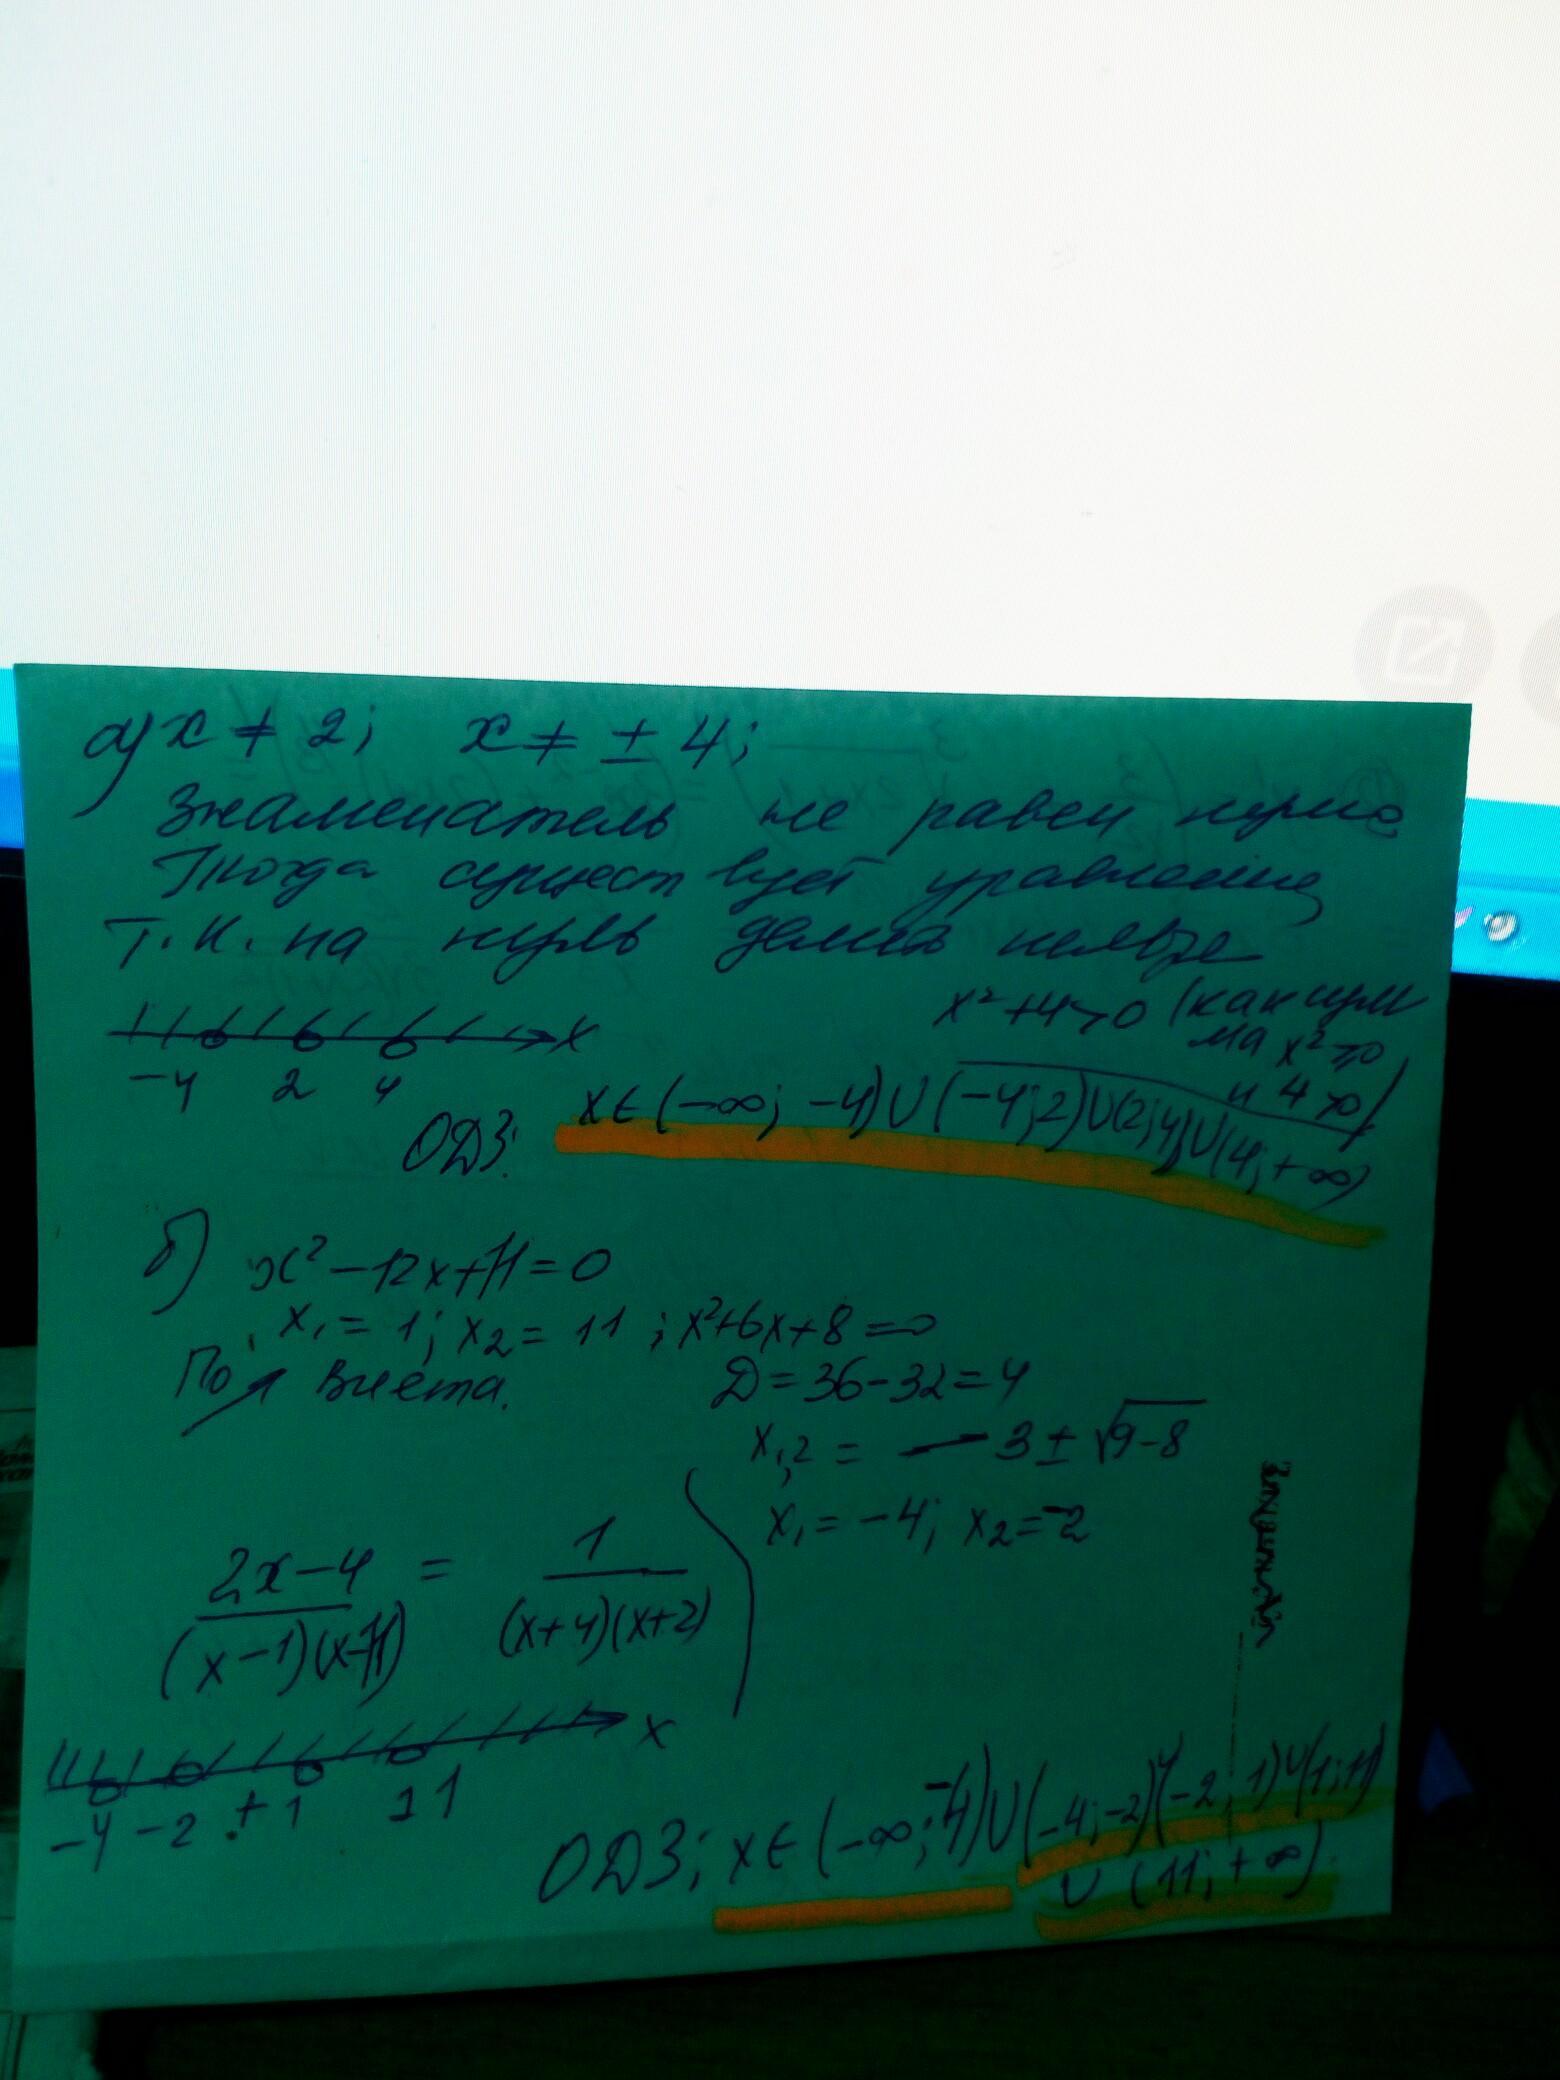 а) x ≠ 2; x ≠ ± 4;
Знаменатель не равен нулю
Тогда существует уравнение
Т.к. на нуль делить нельзя
x² + 4 > 0 (как сум
ма x² ≥ 0
и 4 > 0)
x
-4 2 4
ОДЗ: x ∈ (-∞; -4) ∪ (-4; 2) ∪ (2; 4) ∪ (4; +∞)
б) x² - 12x + 11 = 0
x₁ = 1; x₂ = 11; x² + 6x + 8 = 0
По Виета. D = 36 - 32 = 4
x₁,₂ = - 3 ± √9-8
x₁ = -4; x₂ = -2
2x-4/(x-1)(x-11) = 1/(x+4)(x+2)
x
-4 -2 +1 11
ОДЗ; x ∈ (-∞; -4) ∪ (-4; -2) ∪ (-2; 1) ∪ (1; 11)
∪ (11; +∞)